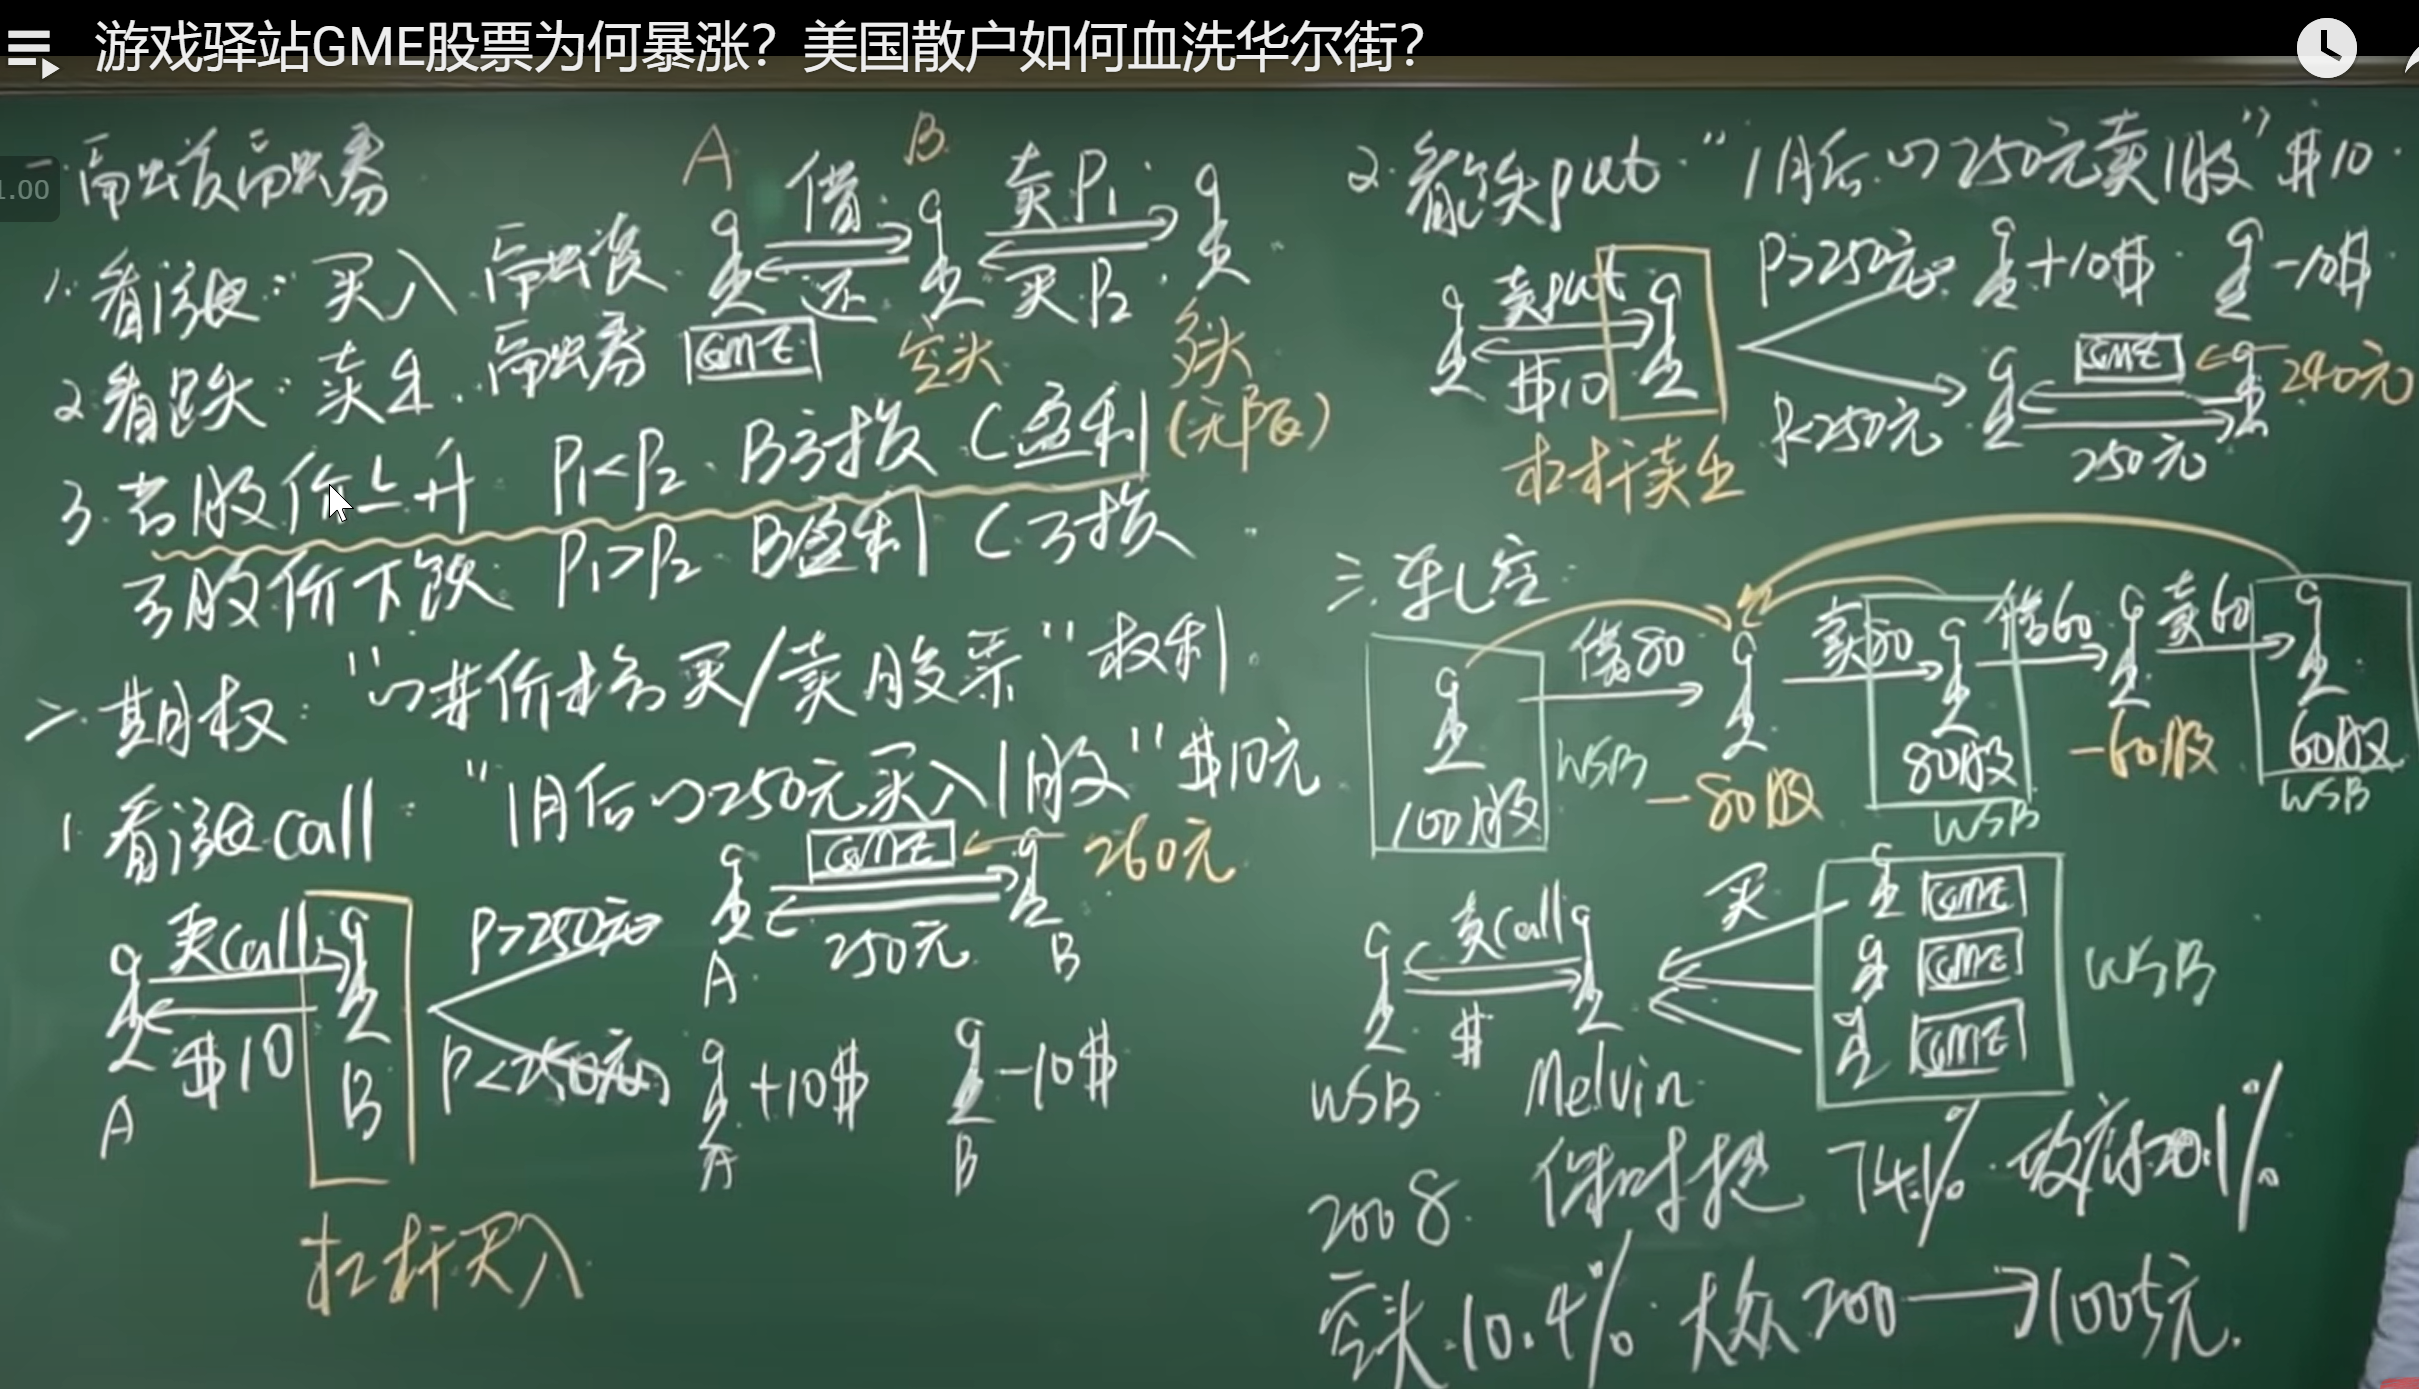 游戏驿站GME股票为何暴涨？美国散户如何血洗华尔街？
1.00
一.融资融券
1.看涨：买入.融资
2.看跌：卖出.融券
A 借 B 卖P1
还 买P2
GME 空头 多头
(无限)
3.若股价上升 P1<P2. B亏损 C盈利
若股价下跌 P1>P2 B盈利 C亏损
二.期权："以某价格买/卖股票"权利.
1.看涨call："1月后以250元买入1股"$10元
卖call
$10
A B
P>250元
GME 260元
250元
A B
P<250元
+10$ -10$
A B
杠杆买入
2.看跌put."1月后以250元卖1股"$10.
卖put
$10
P>250元 +10$ -10$
P<250元
GME 240元
250元
杠杆卖出
三.轧空
借80 卖80 借60 卖60
100股 WSB -80股 80股 -60股 60股
WSB WSB
卖call 买
$
GME
GME
GME
WSB
WSB Melvin
2008. 保时捷 74.1%.政府20.1%
空头.10.4%.大众200→1005元.